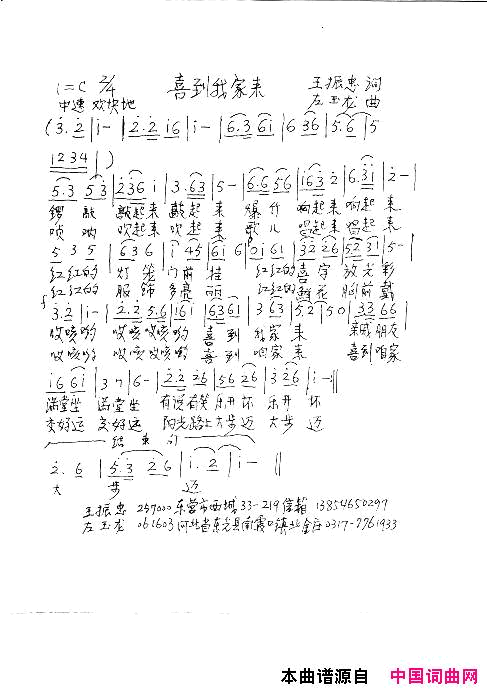 1=C 2/4 喜到我家来 王振忠 词
中速 欢快地 左玉龙 曲
(3.2|i-|2.2 i6|i-|6.3 6i|6 36|5.6|5
1234|)
5.3 53|236 i|3.63|5-|6.6 56|163 2|6.3i|2-|
锣鼓 敲起来 敲起来 爆竹 响起来 响起来
唢呐 吹起来 吹起来 歌儿 唱起来 唱起来
5 3 5|636|i 45|6i 6|0i 6i|32 26|52 31|5-|
红红的 灯笼 门前 挂 红红的 喜字 放光彩
红红的 服饰 多亮丽 红红的 鲜花 胸前戴
3.2|i-|2.2 5.6|i6i|i63 6i|3 63|5.2|50|33 66|
哎咳哟 哎咳 哎咳哟 喜到 我家来 亲戚朋友
哎咳哟 哎咳 哎咳哟 喜到 咱家来 喜到咱家
i6 6i|3 7|6-|2.2 26|56 26|3 26|i-||
满堂坐 满堂坐 有说有笑 乐开怀 乐开怀
交好运 交好运 阳光路上 大步迈 大步迈
结束句
2.6|5.3 26|i.2|i-||
大步迈
王振忠 257000 东营市西城33-219信箱 13854650297
左玉龙 061603 河北省东光县南霞口镇 0317-7761933
本曲谱源自 中国词曲网